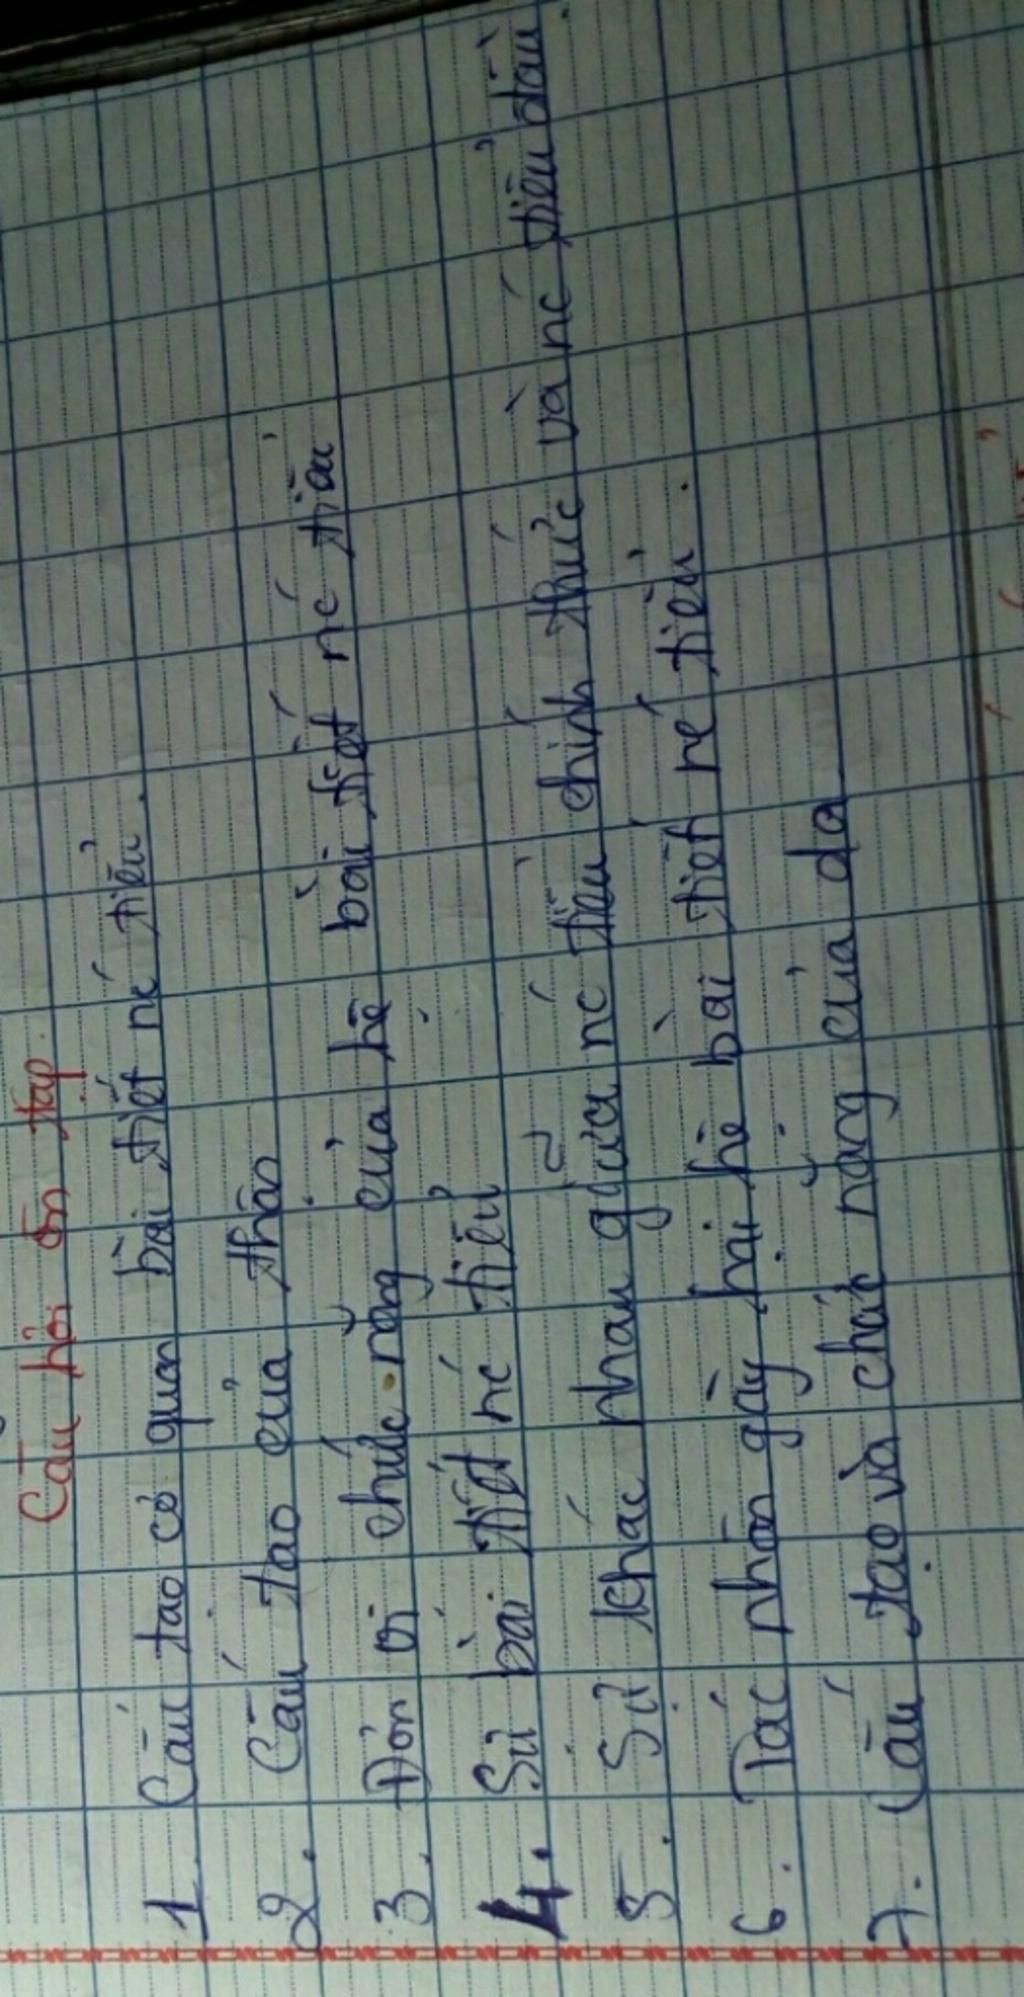 Câu hỏi ôn tập.
1. Cấu tạo cơ quan bài tiết nc tiểu.
2. Cấu tạo của thận
3. Đơn vị chức năng của hệ bài tiết nc tiểu
4. Sự bài tiết nc tiểu
5. Sự khác nhau giữa nc tiểu chính thức và nc tiểu đầu.
6. Tác nhân gây hại hệ bài tiết nc tiểu.
7. Cấu tạo và chức năng của da